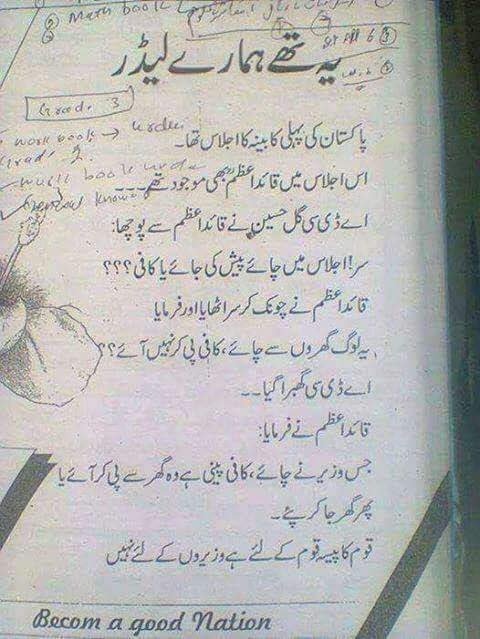 ② Math book
یہ تھے ہمارے لیڈر
Grad. 3
work book → urdu
Grad. 2
پاکستان کی پہلی کابینہ کا اجلاس تھا۔
اس اجلاس میں قائداعظمؒ بھی موجود تھے۔۔۔۔
اے ڈی سی گل حسین نے قائداعظم سے پوچھا:
سر! اجلاس میں چائے پیش کی جائے یا کافی؟؟؟
قائداعظم نے چونک کر سر اٹھایا اور فرمایا
یہ لوگ گھروں سے چائے، کافی پی کر نہیں آئے؟؟
اے ڈی سی گھبرا گیا۔۔
قائداعظم نے فرمایا:
جس وزیر نے چائے، کافی پینی ہے وہ گھر سے پی کر آئے یا
پھر گھر جا کر پئے۔
قوم کا پیسہ قوم کے لئے ہے وزیروں کے لئے نہیں
Becom a good Nation